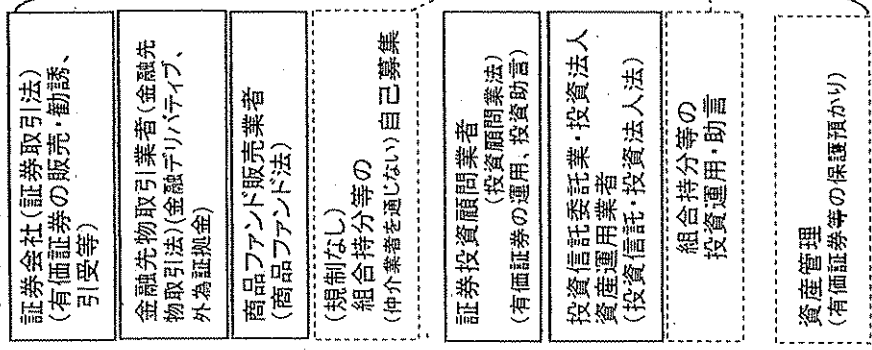 証券会社(証券取引法)
(有価証券の販売・勧誘、
引受等)
金融先物取引業者(金融先
物取引法)(金融デリバティブ、
外為証拠金)
商品ファンド販売業者
(商品ファンド法)
(規制なし)
組合持分等の
(仲介業者を通じない)自己募集
証券投資顧問業者
(投資顧問業法)
(有価証券の運用、投資助言)
投資信託委託業・投資法人
資産運用業者
(投資信託・投資法人法)
組合持分等の
投資運用・助言
資産管理
(有価証券等の保護預かり)